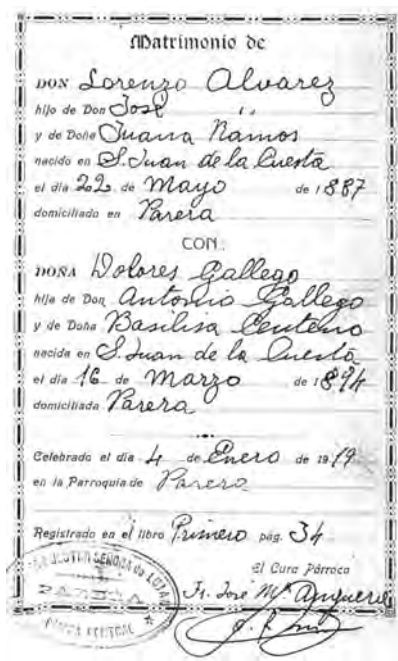 Matrimonio de
DON Lorenzo Alvarez
hijo de Don José
y de Doña Juana Ramos
nacido en S. Juan de la Cuesta
el día 22 de Mayo de 1887
domiciliado en Parera
CON:
DOÑA Dolores Gallego
hija de Don Antonio Gallego
y de Doña Basilisa Centeno
nacida en S. Juan de la Cuesta
el día 16 de Marzo de 1894
domiciliada Parera
Celebrado el día 4 de Enero de 1919
en la Parroquia de Parera
Registrado en el libro Primero pag. 34
El Cura Párroco
Fr. José Mª
NUESTRA SEÑORA de LUJAN
PARERA
PAMPA CENTRAL